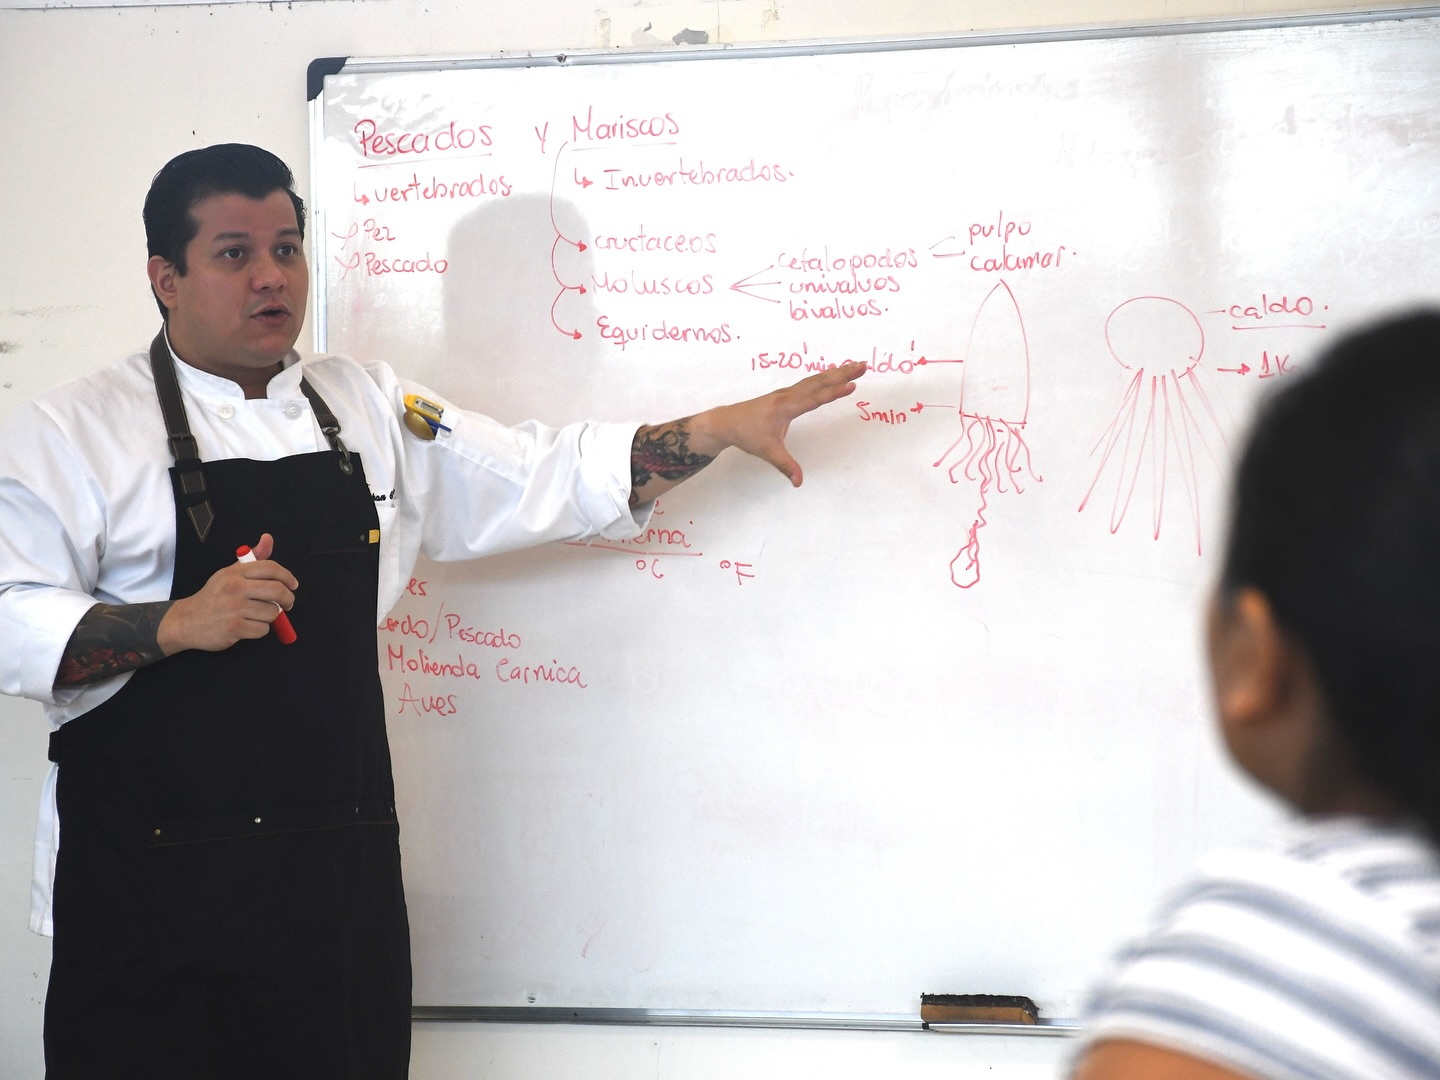 Pescados y Mariscos
↳ vertebrados.
↳ Invertebrados.
Pez
Pescado
crustaceos
Moluscos
Equidermos.
cefalopodos
univalvos
bivalvos.
pulpo
calamar.
15-20'
5min
caldo.
→ 1K
°C °F
es
do/Pescado
Molienda Carnica
Aves